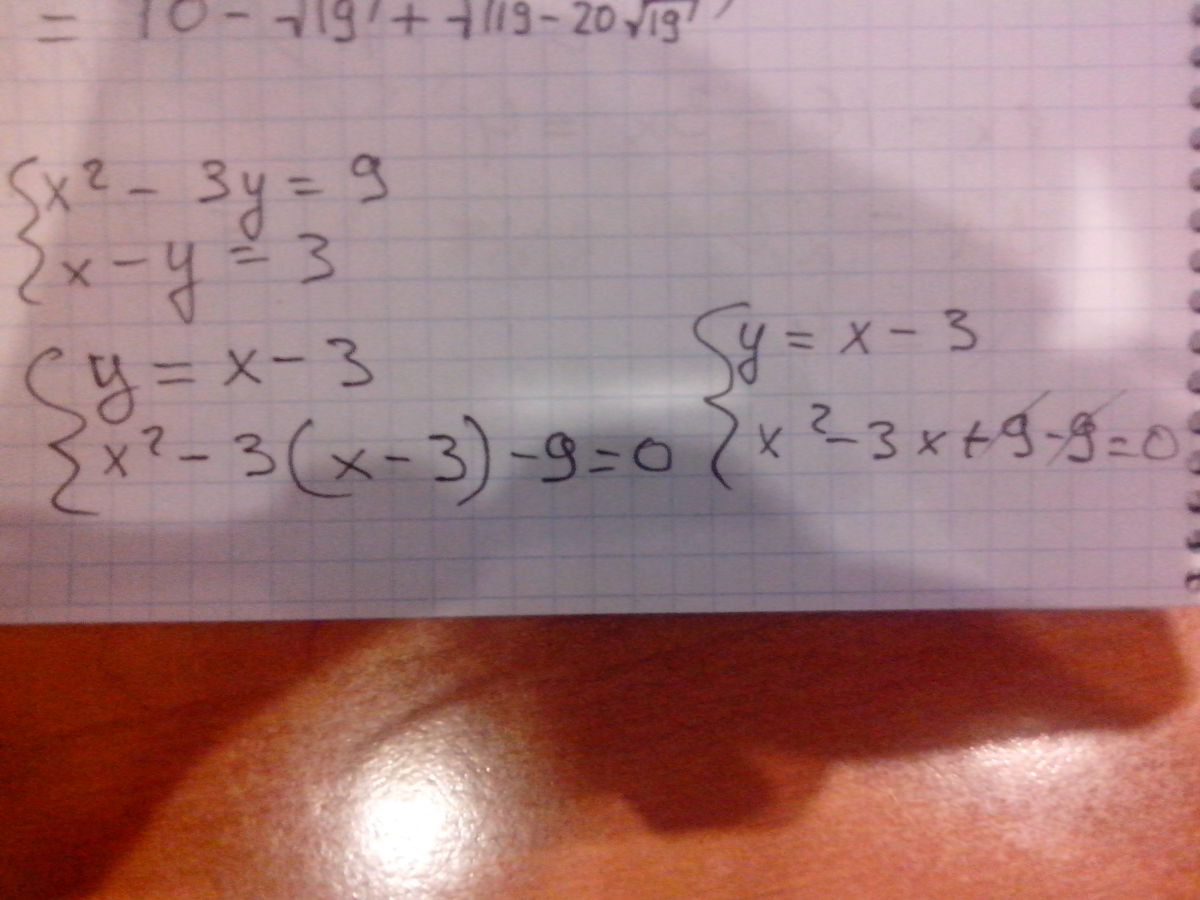 = 10 - √19 + √119 - 20√19
{ x² - 3y = 9
x - y = 3
{ y = x - 3
x² - 3(x - 3) - 9 = 0
{ y = x - 3
x² - 3x + 9 - 9 = 0